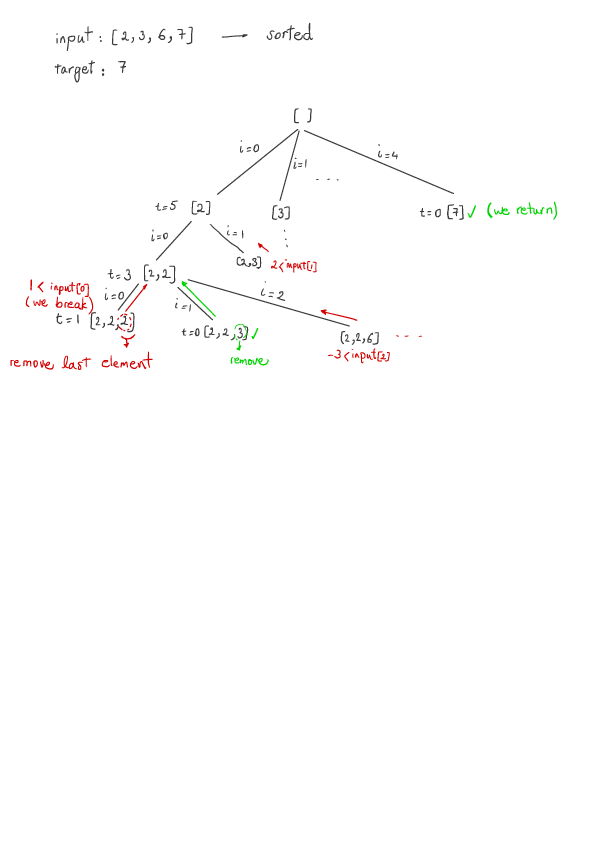 input : [2, 3, 6, 7] → sorted
target : 7
[ ]
i=0
i=1
i=4
. . .
t=5 [2]
[3]
t=0 [7] ✓ (we return)
i=0
i=1
[2,3]
2 < input[1]
t=3 [2,2]
1 < input[0]
(we break)
i=0
i=1
i=2
t=1 [2,2,2]
t=0 [2,2,3] ✓
[2,2,6]
- - -
-3 < input[2]
remove last element
remove